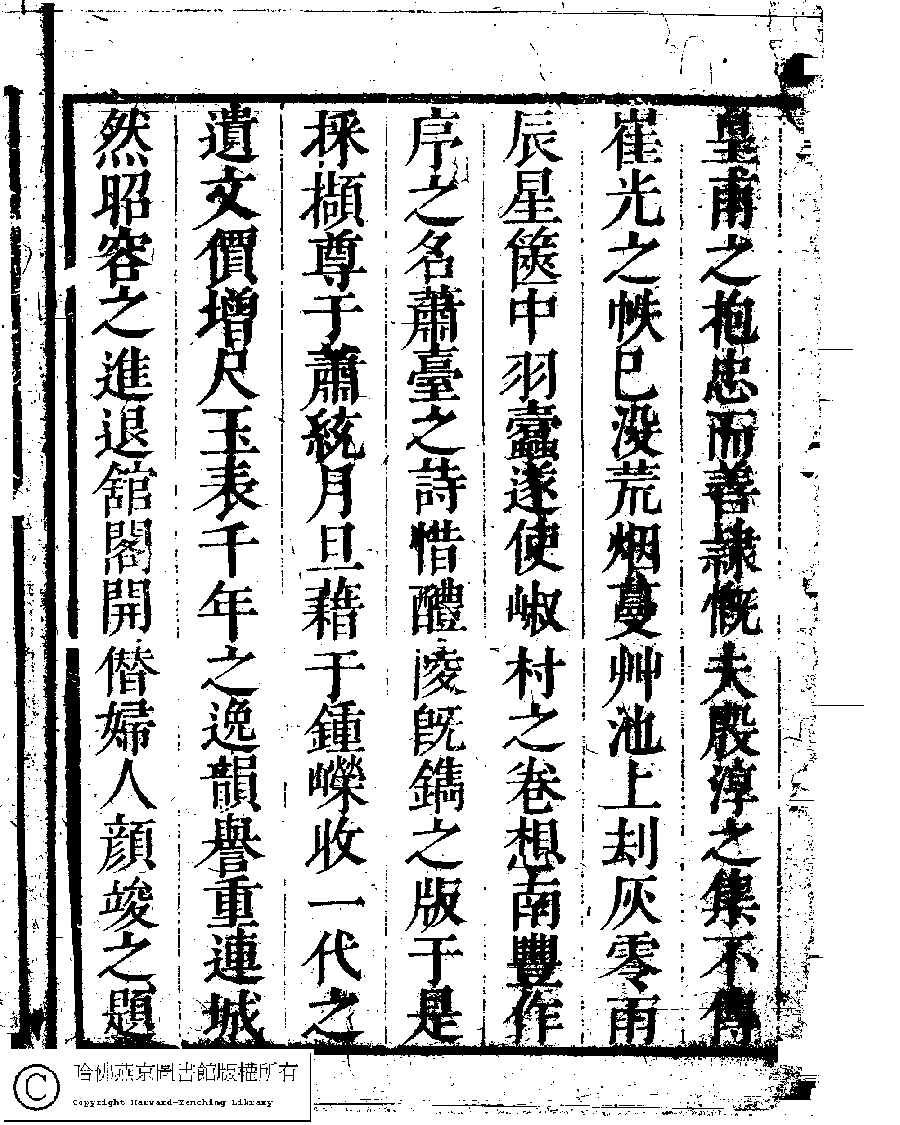 皇甫之抱忠而善隷慨夫殷淳之集不傳
崔光之帙已没荒烟蔓艸池上刼灰零雨
辰星篋中羽蠧遂使峸村之卷想南豐作
序之名蕭臺之詩惜醴陵旣鐫之版于是
採擷尊于蕭統月旦藉于鍾嶸收一代之
遺文價增尺玉表千年之逸韻譽重連城
然昭容之進退舘閣開僭婦人顔竣之題
哈佛燕京圖書館版權所有
Copyright Harvard-Yenching Library